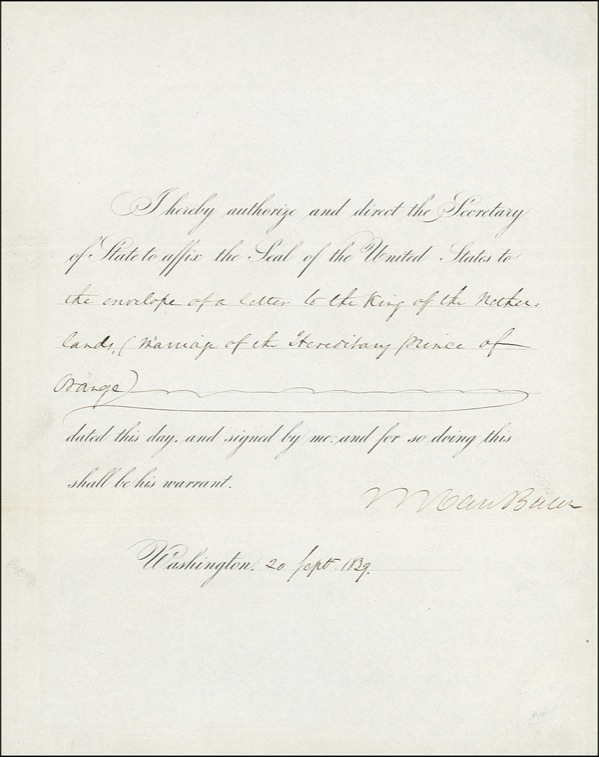 I hereby authorize and direct the Secretary
of State to affix the Seal of the United States to
the envelope of a letter to the King of the Nether-
lands, (Marriage of the Hereditary Prince of
Orange)
dated this day, and signed by me: and for so doing this
shall be his warrant.
M Van Buren
Washington, 20 Sept 1839.